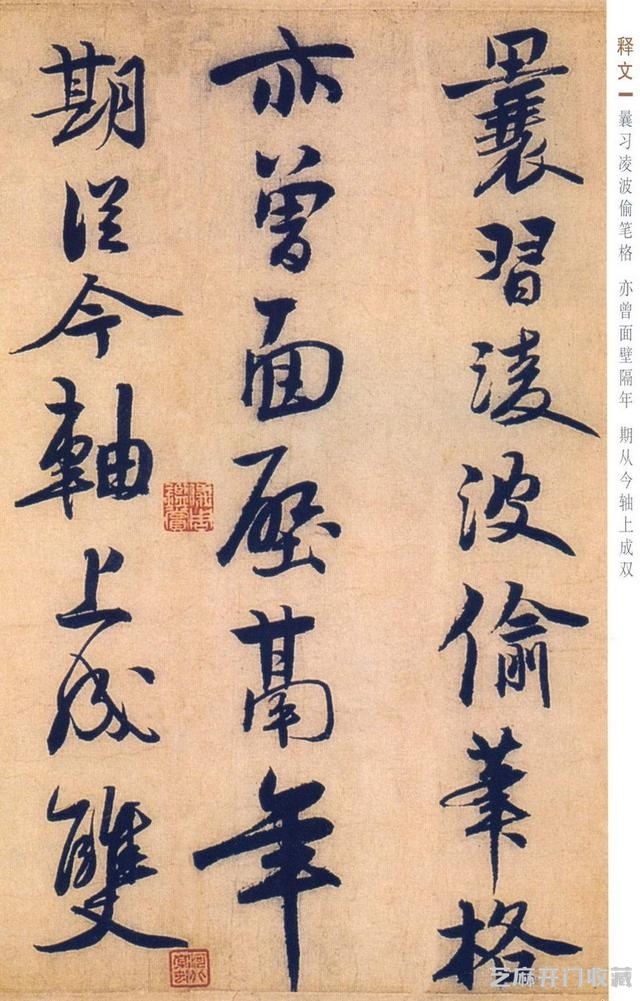 释文
曩习凌波偷笔格 亦曾面壁隔年 期从今轴上成双
曩習淩波偷筆格
亦曾面壁鬲年
期從今軸上成雙
芝麻开门收藏